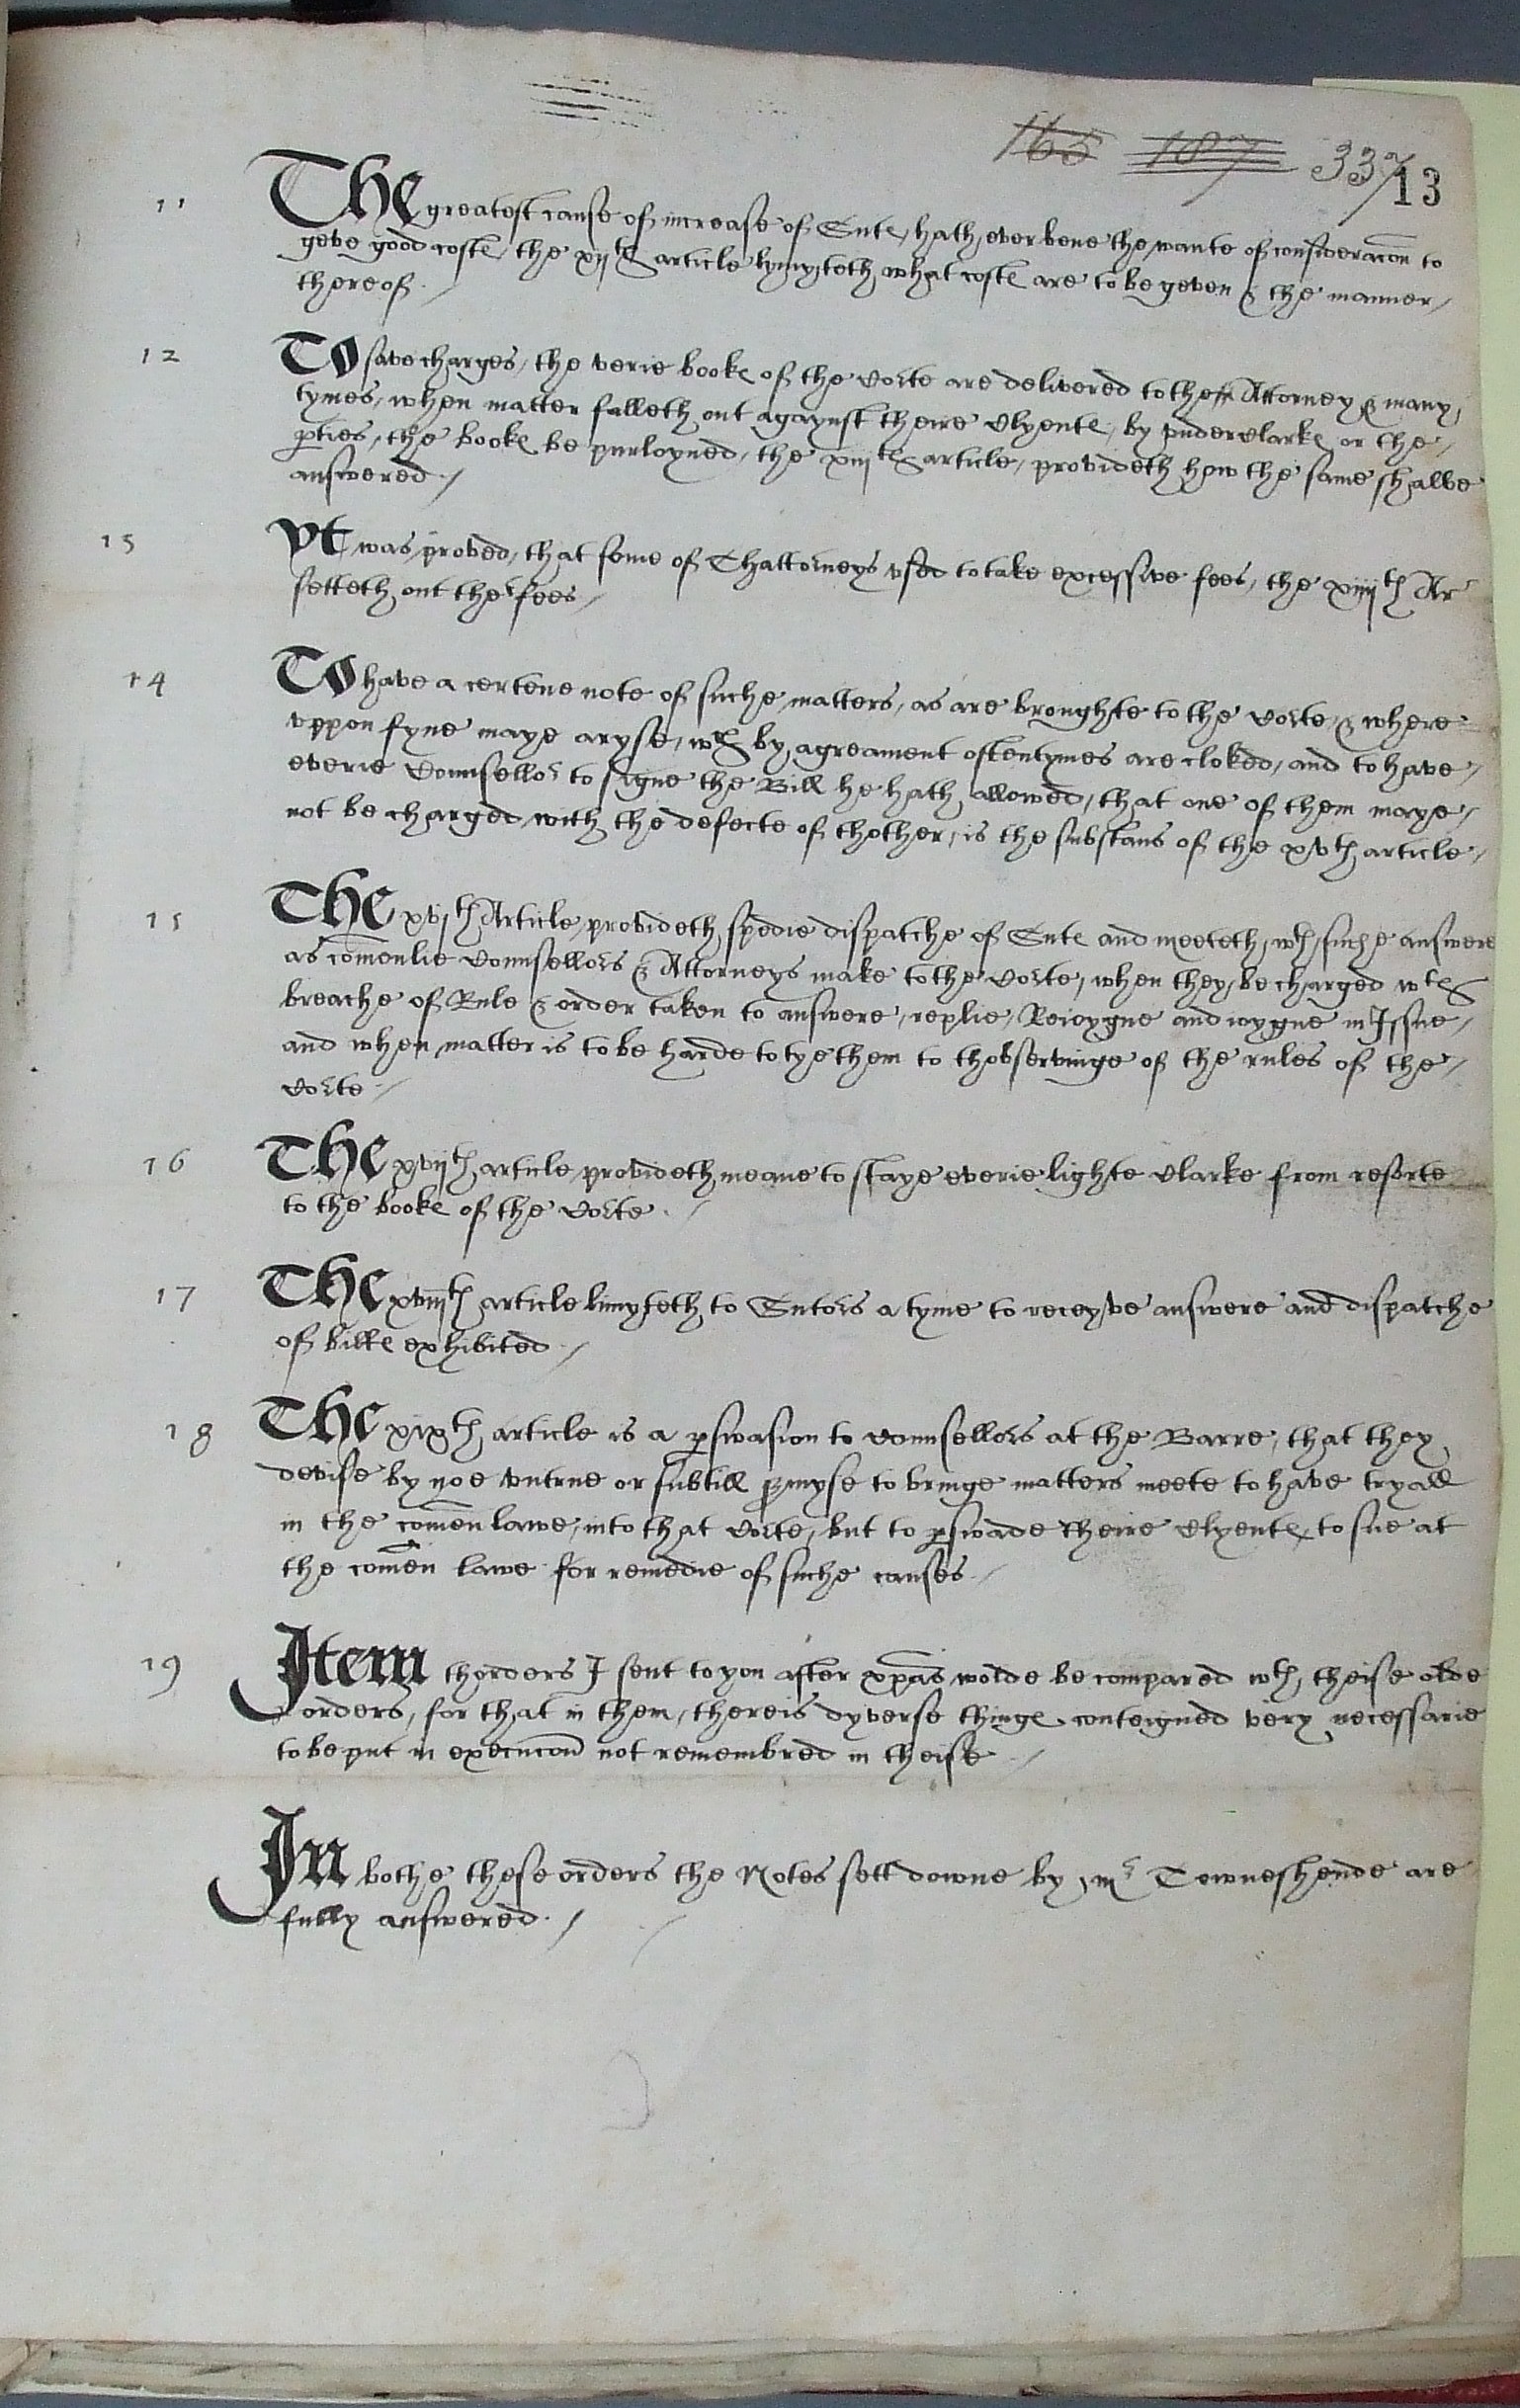 165 187 337
13
11 The greatest cause of increase of Sute, hath ever bene the wante of consideracōn to
geve good coste, the xijth article lymyteth what coste are to be geven & the manner
thereof./
12 To save charges, the verie booke of the Corte are delivered to them Attorney & many
tymes, when matter falleth out agaynst theire Clyente, by underclarke or the
pties, the booke be purloyned, the xiijth article, provideth how the same shalbe
answered./
13 Yt was proved, that some of Thattorneys used to take excessive fees, the xiiijth Ar
setteth out ther fees/
14 To have a certene note of suche matters, as are broughte to the Corte, & where
uppon fyne maye aryse, wch by agreament oftentymes are cloked, and to have
everie Counsellor to signe the Bill he hath allowed, that one of them maye
not be charged with the defecte of thother, is the substans of the xvth article
15 The xvjth Article provideth spedie dispatche of Sute and meeteth wth suche answere
as comōnlie Counsellors & Attorneys make to the Corte, when they be charged wth
breache of Rule & order taken to answere, replie, Reioygne and ioygne in Issue,
and when matter is to be harde to tye them to thobservinge of the rules of the
Corte./
16 The xvijth article provideth meane to staye everie lighte Clarke from resorte
to the booke of the Corte./
17 The xviijth article limyteth to Sutors a tyme to receyve answere and dispatche
of bille exhibited./
18 The xixth article is a pswasion to Counsellors at the Barre, that they
devise by noe untrue or subtill pmyse to bringe matters meete to have tryall
in the comēn lawe, into that Corte, but to pswade theire Clyente, to sue at
the comēn lawe for remedie of suche causes./
19 Item thorders I sent to you after xpās wolde be compared wth theise olde
orders, for that in them, there is dyverse thinge conteigned very necessarie
to be put in execucōn not remembred in theise./
In bothe these orders the Notes sett downe by mr Towneshende are
fully answered./